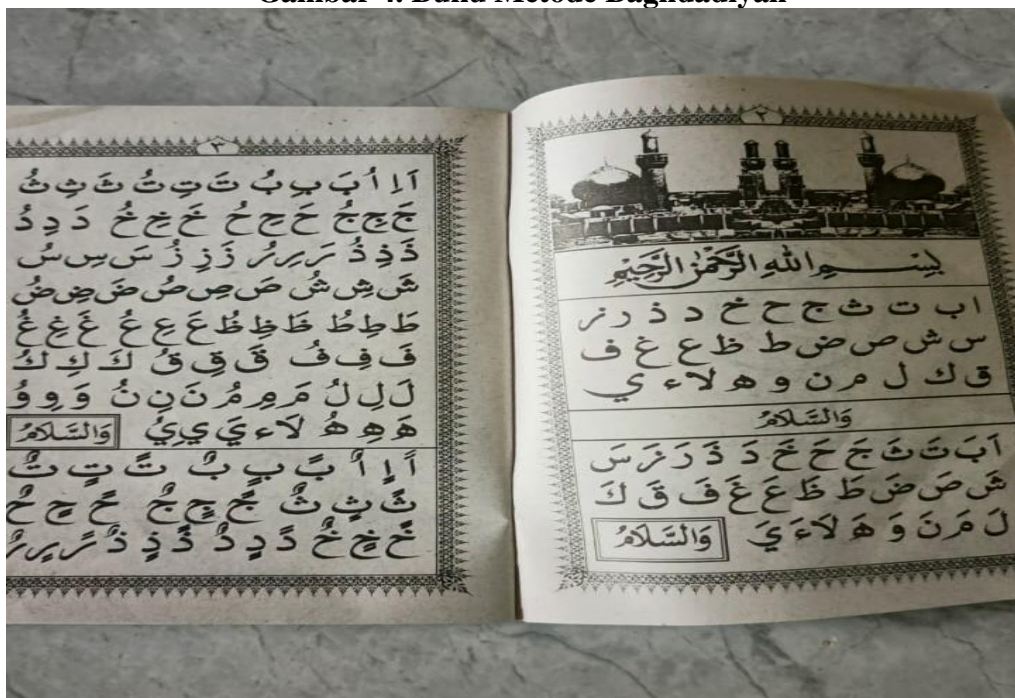 Gambar 4. Buku Metode Baghdadiyah
٢
بِسْمِ اللهِ الرَّحْمٰنِ الرَّحِيْمِ
ا ب ت ث ج ح خ د ذ ر ز
س ش ص ض ط ظ ع غ ف
ق ك ل م ن و ه لا ء ي
وَالسَّلَامُ
اَ بَ تَ ثَ جَ حَ خَ دَ ذَ رَ زَ سَ
شَ صَ ضَ طَ ظَ عَ غَ فَ قَ كَ
لَ مَ نَ وَ هَ لَا ءَ يَ وَالسَّلَامُ
٣
اَ اِ اُ بَ بِ بُ تَ تِ تُ ثَ ثِ ثُ
جَ جِ جُ حَ حِ حُ خَ خِ خُ دَ دِ دُ
ذَ ذِ ذُ رَ رِ رُ زَ زِ زُ سَ سِ سُ
شَ شِ شُ صَ صِ صُ ضَ ضِ ضُ
طَ طِ طُ ظَ ظِ ظُ عَ عِ عُ غَ غِ غُ
فَ فِ فُ قَ قِ قُ كَ كِ كُ
لَ لِ لُ مَ مِ مُ نَ نِ نُ وَ وِ وُ
هَ هِ هُ لَا ءَ يَ يِ يُ وَالسَّلَامُ
اً اٍ اٌ بً بٍ بٌ تً تٍ تٌ
ثً ثٍ ثٌ جً جٍ جٌ حً حٍ حٌ
خً خٍ خٌ دً دٍ دٌ ذً ذٍ ذٌ رً رٍ رٌ